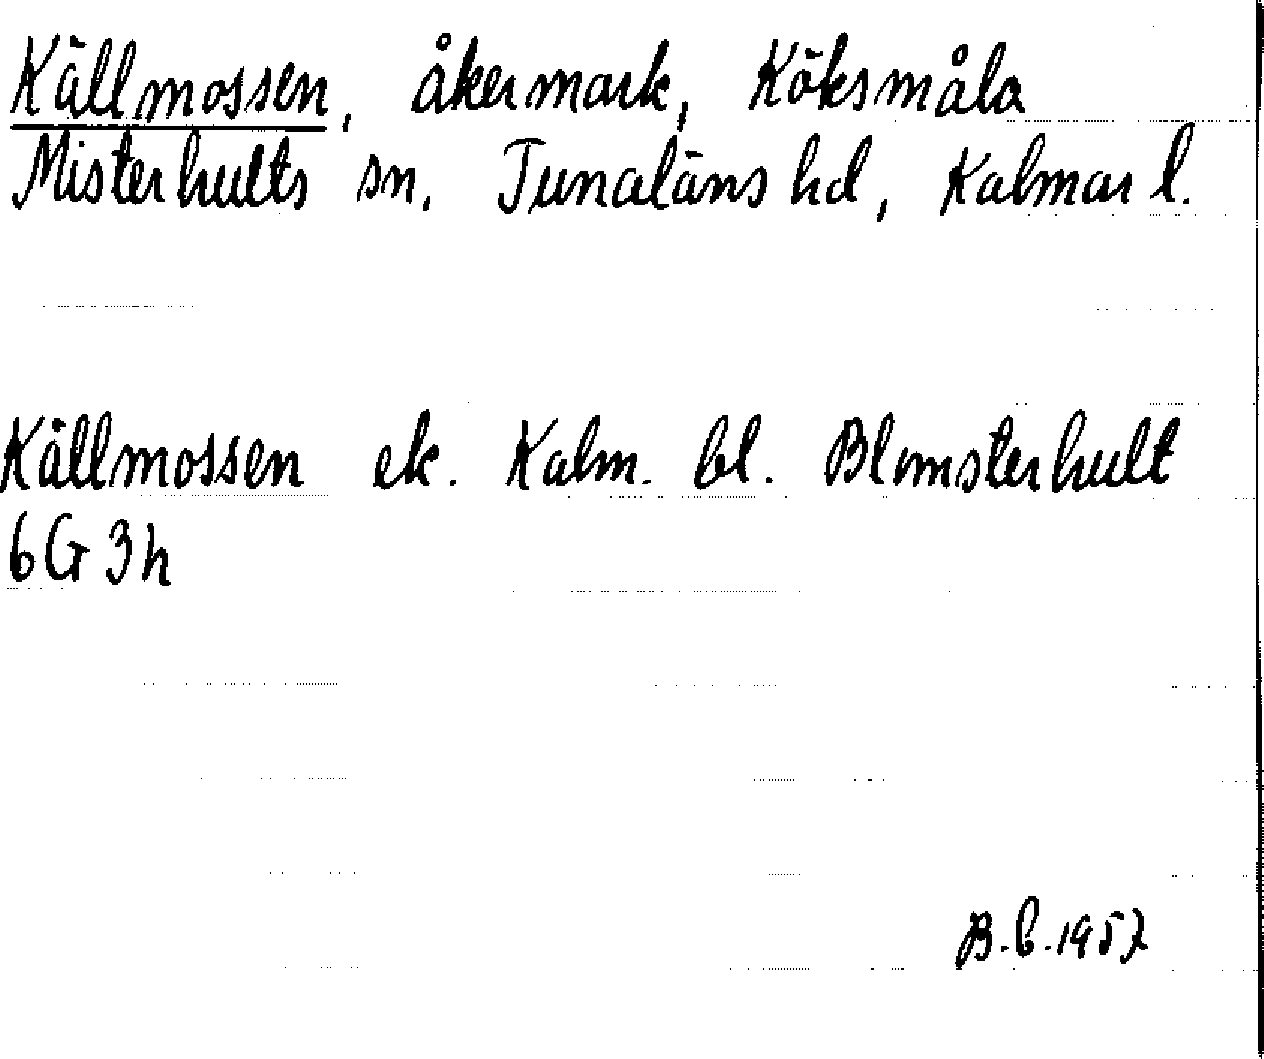 Källmossen, åkermark, Köksmåla
Misterhults sn. Tunaläns hd, Kalmar l.
Källmossen ek. Kalm. bl. Blomsterhult
6G 3h
B.b.1957